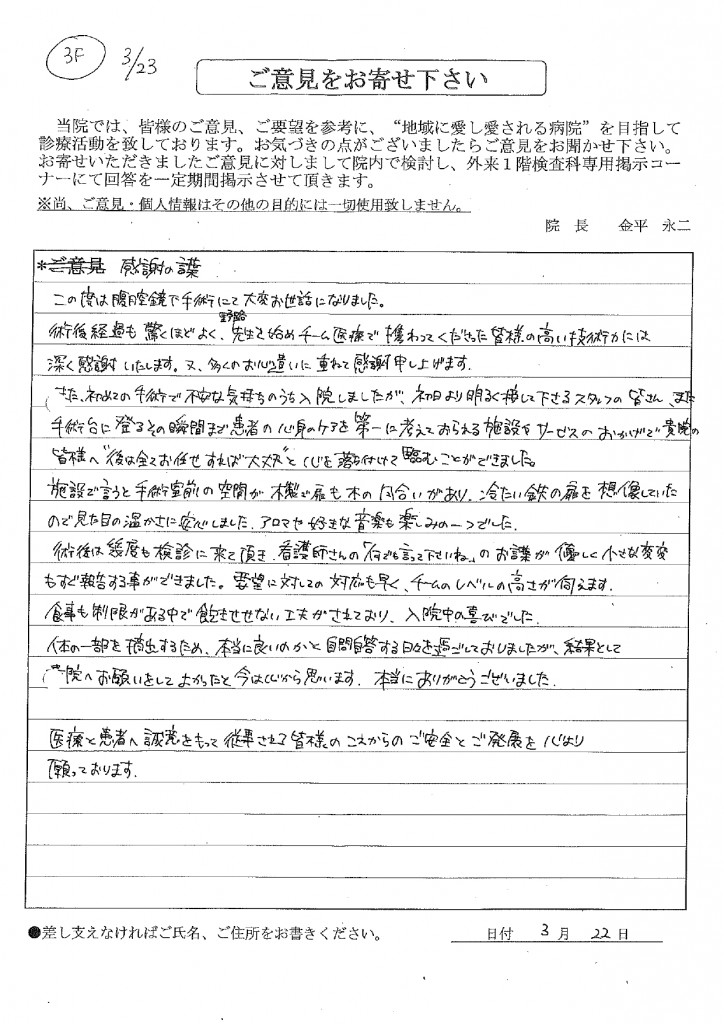 3F 3/23
ご意見をお寄せ下さい
当院では、皆様のご意見、ご要望を参考に、“地域に愛し愛される病院”を目指して
診療活動を致しております。お気づきの点がございましたらご意見をお聞かせ下さい。
お寄せいただきましたご意見に対しまして院内で検討し、外来1階検査科専用掲示コー
ナーにて回答を一定期間掲示させて頂きます。
※尚、ご意見・個人情報はその他の目的には一切使用致しません。
院 長 金平 永二
*ご意見 感謝の言葉
この度は腹腔鏡で手術にて大変お世話になりました。
術後経過も驚くほどよく、先生を始めチーム医療で携わってくださった皆様の高い技術力には
深く感謝いたします。又、多くのお心遣いに重ねて感謝申し上げます。
また、初めての手術で不安な気持ちのうち入院しましたが、初日より明るく接して下さるスタッフの皆さん、また
手術台に登るその瞬間まで患者の心身のケアを第一に考えておられる施設やサービスのおかげで貴院の
皆様へ“後は全てお任せすれば大丈夫”と心を落ち付けて臨むことができました。
施設で言うと手術室前の空間が木製で扉も木の風合いがあり、冷たい鉄の扉を想像していた
ので見た目の温かさに安心しました。アロマや好きな音楽も楽しみの一つでした。
術後は幾度も検診に来て頂き、看護師さんの「何でも言って下さいね。」のお言葉が優しく小さな変変
もすぐ報告する事ができました。要望に対しての対応も早く、チームのレベルの高さが伺えます。
食事も制限がある中で飽きさせない工夫がされており、入院中の喜びでした。
体の一部を摘出するため、本当に良いのかと自問自答する日々を過ごしておりましたが、結果として
貴院へお願いをしてよかったと今は心から思います。本当にありがとうございました。
医療と患者へ誠意をもって従事される皆様のこれからのご安全とご発展を心より
願っております。
●差し支えなければご氏名、ご住所をお書きください。
日付 3月 22日